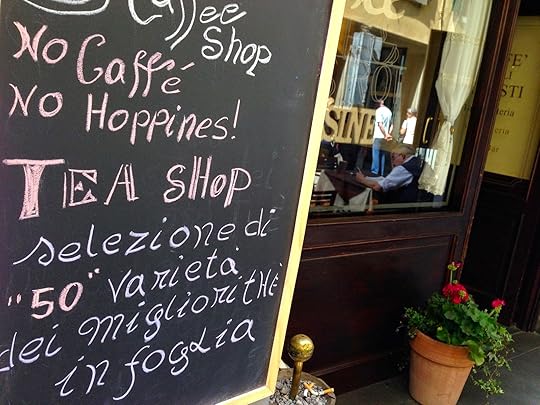 Caffee
Shop
No Caffé
No Hoppines!
TEA SHOP
selezione di
"50" varietà
dei migliori tHÈ
in foglia
SINE